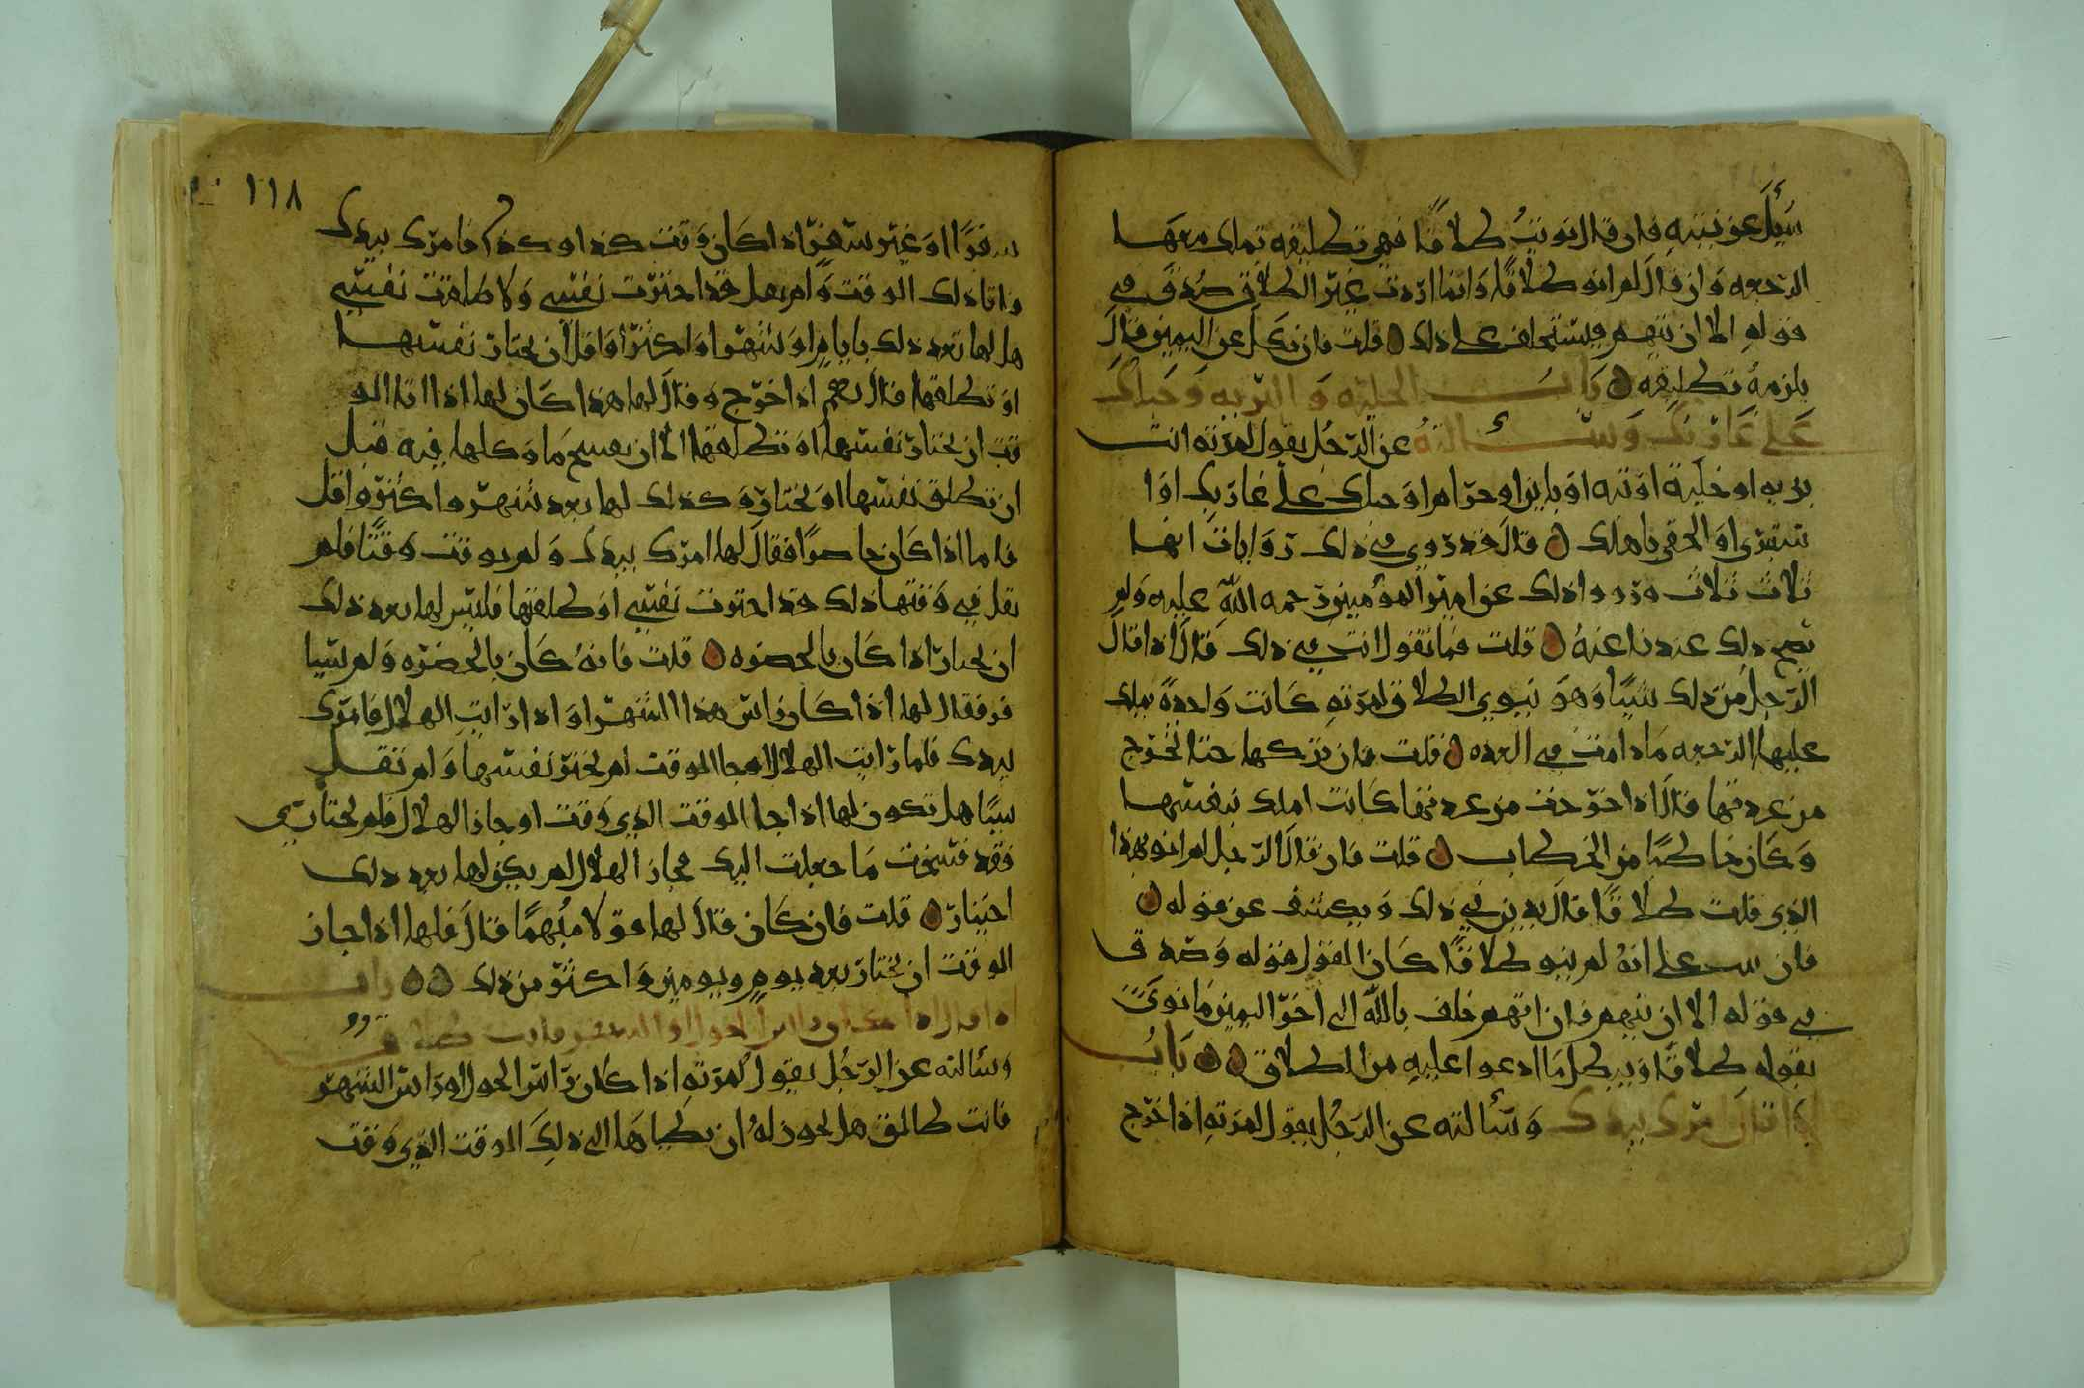 سُئِلَ عن نيته فان قال نويتُ طلاقًا فهي تطليقه يملك معها
الرجعه وَان قالَ لم انو طلاقًا وَانما اردت غير الطلاق صُدقَ في
قوله الا ان يتهم فيستحلف على ذلك ٥ قلت فان نكل عن اليمين قالَ
يلزمهُ تطليقه ٥ بَابُ الخليه وَالبريه وَحبلك
عَلى غَاربك وَسَألتهُ عن الرّجُل يقول لامرته انت
بريه او خليّه او بته او باين او حرام او حبلك على غاربك او ا
ستبري او الحقي باهلك ٥ قالَ قد روي في ذلك روايات انها
ثلاث ثلاث ورووا ذلك عن امير المؤمنين رحمه الله عليه ولم
يصح ذلك عندنا عنهُ ٥ قلت فما تقول انت في ذلك قالَ اذا قالَ
الرّجل من ذلك شيئًا وَهوَ ينوي الطلاق لامرته كانت وَاحدةً يملك
عليها الرّجعه مَا دامت في العده ٥ قلت فان تركها حتا تخرج
من عدتها قالَ اذا خرجت من عدتها كانت املك بنفسها
وَكَان خاطبًا من الخطاب ٥ قلت فان قالَ الرّجل لم انو بهذا
الذي قلت طلاقًا قالَ يدين في ذلك وَيكشف عن قوله ٥
فان ثبت على انهُ لم ينو طلاقًا كَان القول قوله وَصدق
في قوله الا ان يتهم فان اتهم حلف بالله الذي اخرّ اليمين مَا نوَى
بقوله طلاقًا وَيبطل مَا ادعوا عليه من الطلاق ٥ ٥ بَابُ
اذا قالَ امرك بيدك وَسَألته عن الرّجُل يقول لامرته اذا خرج
١١٨
سفرًا او غير سفر اذا كَان وَقت كذا وكذا فامرك بيدك
واتا ذلك الوقت وَلم يقل قد اخترت نفسي وَلا طلقت نفسي
هل لها بعد ذلك بايام او شهر او اكثر او اقل ان تختار نفسها
او تطلقها قالَ نعم اذا خرج وقالَ لها هذا كَان لها اذا اتا الو
قت ان تختار نفسها او تطلقها الا ان يفسخ مَا وَكلها فيه قبل
ان تطلق نفسها او تختار وَكذلك لها بعد شهر واكثر واقل
فاما اذا كَان حاضرًا فقالَ لها امرك بيدك وَلم يوقت وَقتًا فلم
تقل في وَقتها ذلك قد اخترت نفسي او طلقتها فليس لها بعد ذلك
ان تختار اذا كَان بالحضره ٥ قلت فانهُ كَان بالحضره وَلم يسا
فر فقال لها اذا كَان راس هذا الشهر او اذا رَايت الهلال فامرك
بيدك فلما رَايت الهلال او جا الوقت لم تختر نفسها وَلم تقل
شيئًا هل يكون لها اذا جا الوقت الذي وَقت او جاز الهلال فلم تختاري
فقد فسخت مَا جعلت اليك فجاز الهلال لم يكن لها بعد ذلك
اختيار ٥ قلت فان كَان قالَ لها قولا مبهمًا قالَ فلها اذا جاز
الوقت ان تختار بعد يوم ويومين وَاكثر من ذلك ٥ ٥ بابُ
اذا قال اذا كان راس الحول او الشهر فانت طالق
وسَألته عن الرّجُل يقول لامرته اذا كَان رَاس الحول او رَاس الشهر
فانت طالق هل يجوز لهُ ان يطياها الى ذلك الوقت الذي وَقت